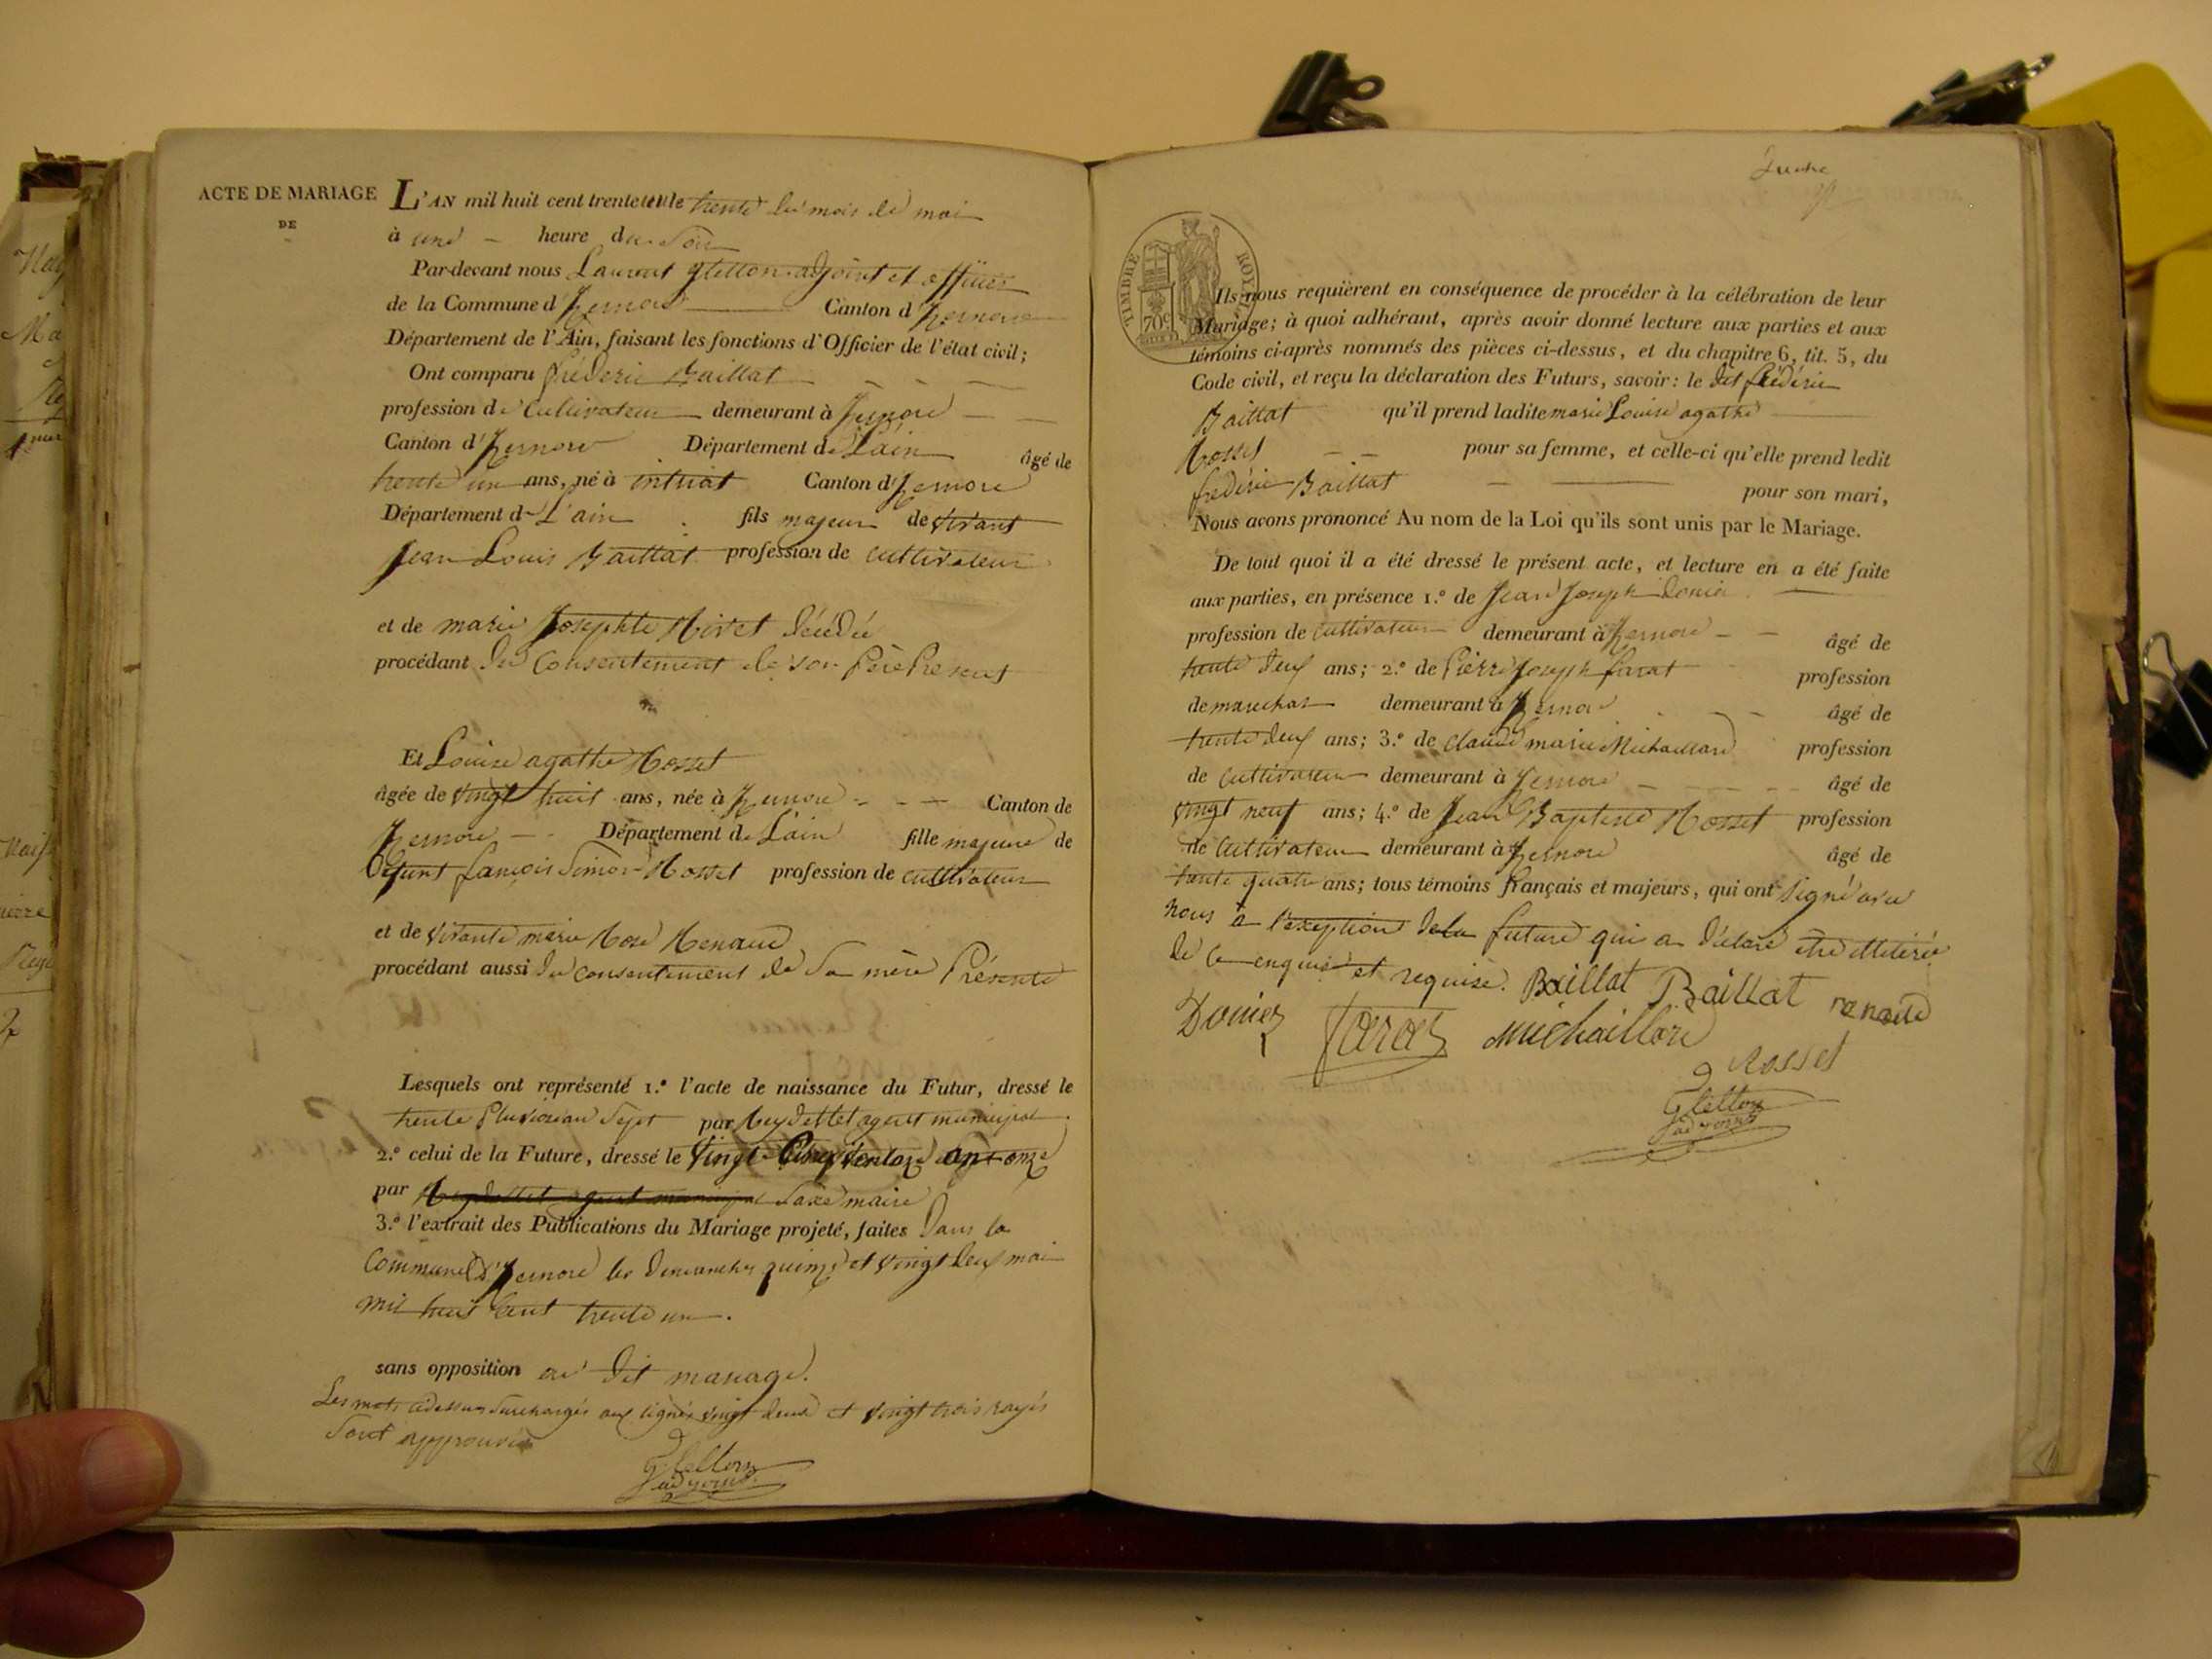 ACTE DE MARIAGE
DE
L'AN mil huit cent trente et le trente du mois de mai
à une heure du soir
Par-devant nous Laurent gletton adjoint et officier
de la Commune d'izernore Canton d'izernore
Département de l'Ain, faisant les fonctions d'Officier de l'état civil;
Ont comparu frederic Baillat
profession de Cultivateur demeurant à izernore
Canton d'izernore Département de L'ain âgé de
trente un ans, né à intriat Canton d'izernore
Département de L'ain fils majeur de vivant
jean Louis Baillat profession de cultivateur
et de marie josephte Nivet décédée
procédant du Consentement de son Père Present
Et Louise agathe Rosset
âgée de vingt huit ans, née à izernore Canton de
izernore Département de L'ain fille majeure de
Défunt françois Simon Rosset profession de cultivateur
et de vivante marie Rose Renaud
procédant aussi du consentement de Sa mère Présente
Lesquels ont représenté 1.º l'acte de naissance du Futur, dressé le
trente Pluviose an Sept par Reydellet agent municipal
2.º celui de la Future, dressé le Vingt Cinq Ventose an onze
par Reydellet agent municipal maire
3.º l'extrait des Publications du Mariage projeté, faites Dans la
Commune d'izernore les dimanches quinze et vingt deux mai
mil huit Cent trente un.
sans opposition au dit mariage.
Les mots cidessus Surchargés aux lignes vingt deux et vingt trois rayés
Sont approuvés
Gletton
adjoint
TIMBRE ROYAL
70c
Ils nous requièrent en conséquence de procéder à la célébration de leur
Mariage; à quoi adhérant, après avoir donné lecture aux parties et aux
témoins ci-après nommés des pièces ci-dessus, et du chapitre 6, tit. 5, du
Code civil, et reçu la déclaration des Futurs, savoir: le dit frédéric
Baillat qu'il prend ladite marie Louise agathe
Rosset pour sa femme, et celle-ci qu'elle prend ledit
frederic Baillat pour son mari,
Nous avons prononcé Au nom de la Loi qu'ils sont unis par le Mariage.
De tout quoi il a été dressé le présent acte, et lecture en a été faite
aux parties, en présence 1.º de jean joseph Donier
profession de Cultivateur demeurant à izernore âgé de
trente deux ans; 2.º de Pierre joseph favat profession
de marechal demeurant à izernore âgé de
trente deux ans; 3.º de claude marie Michaillard profession
de Cultivateur demeurant à izernore âgé de
vingt neuf ans; 4.º de jean Baptiste Rosset profession
de Cultivateur demeurant à izernore âgé de
trente quatre ans; tous témoins français et majeurs, qui ont signé avec
nous à l'exception de la future qui a déclaré être illitérée
de ce enquise et requise. Baillat Baillat renaud
Donier favat Michaillard
Rosset
Gletton
adjoint